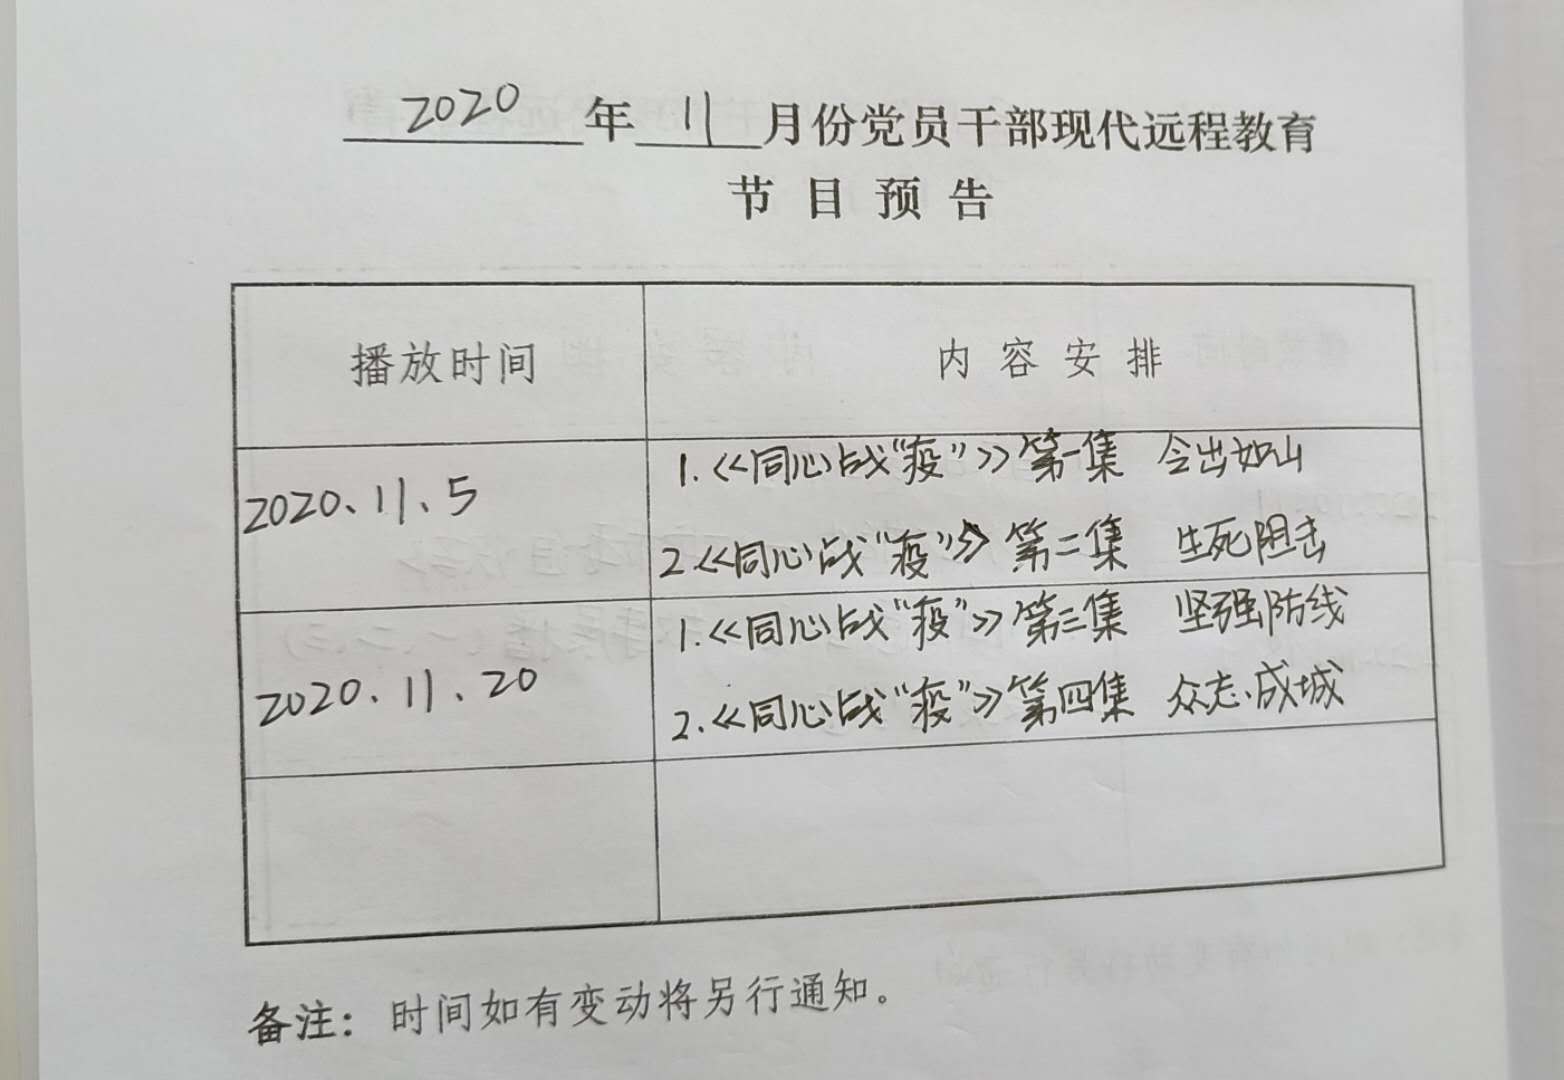 2020年11月份党员干部现代远程教育
节目预告
播放时间 内容安排
2020、11、5
1.《同心战“疫”》第一集 令出如山
2《同心战“疫”》第二集 生死阻击
2020.11、20
1.《同心战“疫”》第三集 坚强防线
2.《同心战“疫”》第四集 众志成城
备注：时间如有变动将另行通知。